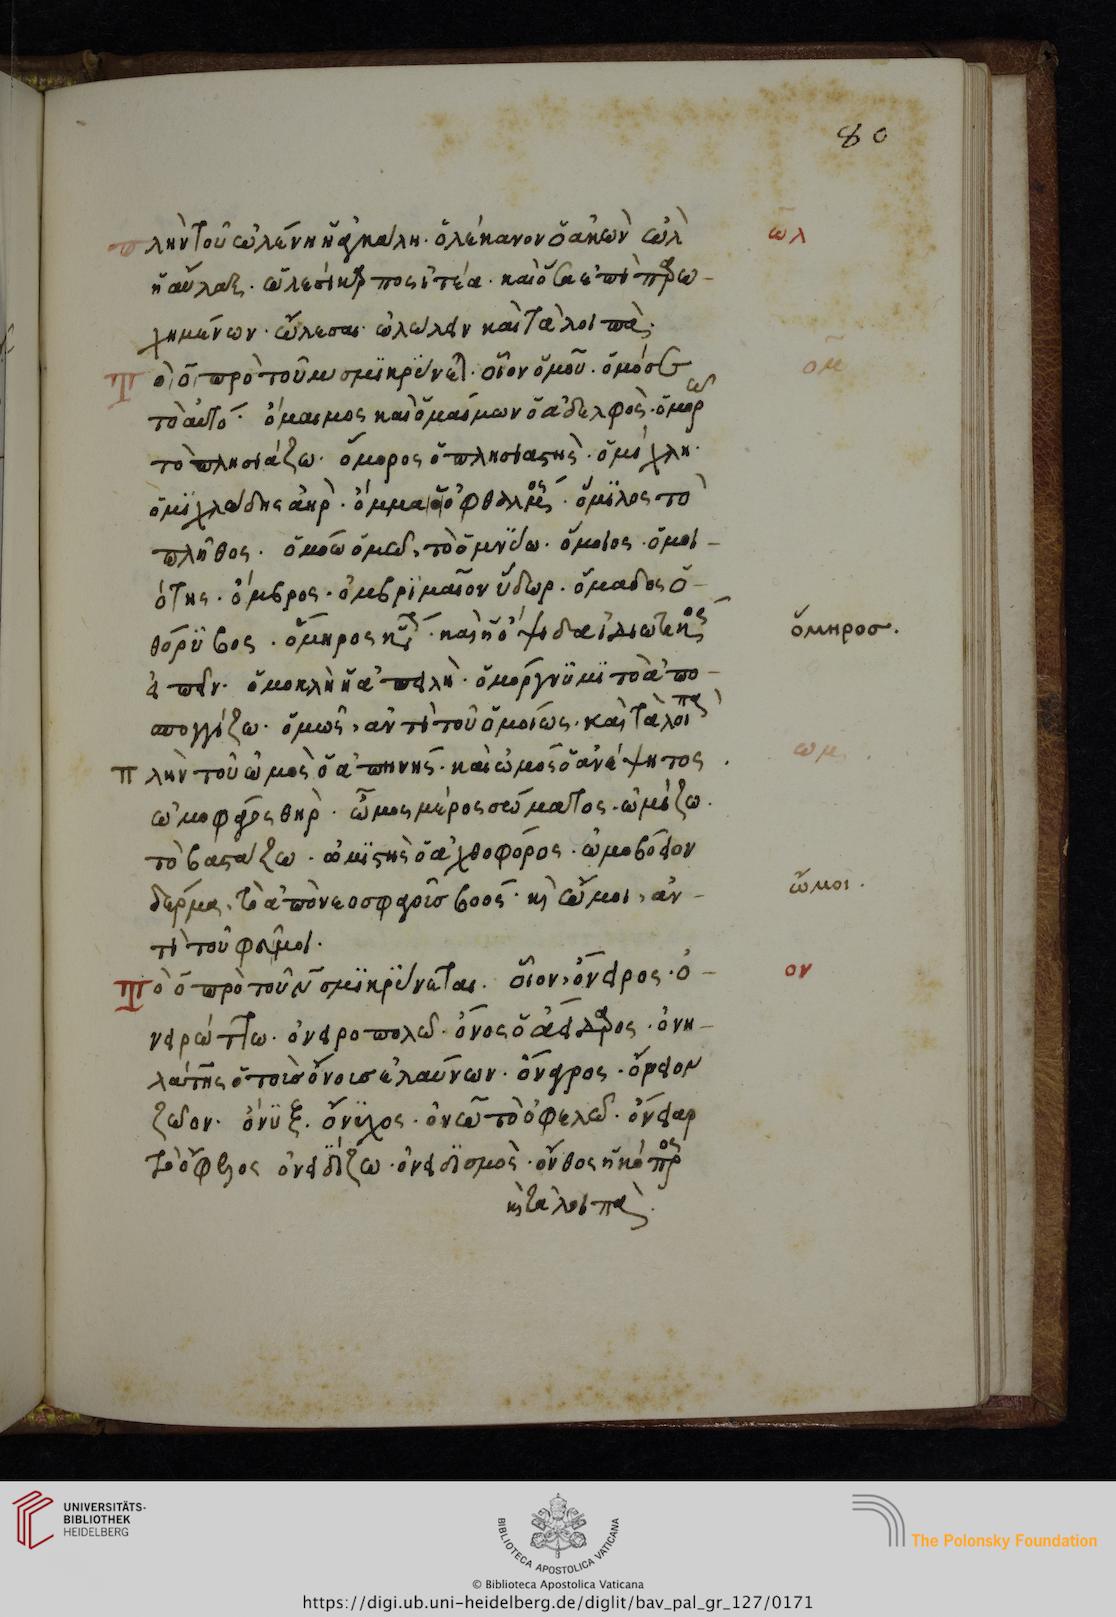 80
πλὴν τοῦ ὠλένη ἡ ἀγκάλη· ὀλέκρανον ὁ ἀγκὼν ὠλ
ωλ
ἢ αὖλαξ· ὠλεσίκαρπος ἰτέα· καὶ ὅσα ἐπὶ παρω-
χημένων· ὤλεσαι ὠλώλειν καὶ τὰ λοιπά·
τὸ ο πρὸ τοῦ μ σμικρύνεται· οἷον ὁμοῦ· ὁμόσε
ομ
τὸ αὐτό· ὅμαιμος καὶ ὁμαίμων ὁ ἀδελφός· ὁμορῶ
τὸ πλησιάζω· ὅμορος ὁ πλησιαστής· ὁμίχλη·
ὀμιχλώδης ἀήρ· ὄμμα ὁ ὀφθαλμός· ὅμιλος τὸ
πλῆθος· ὁμοίω ὀμῶ, τὸ ὀμνύω· ὅμοιος· ὁμοι-
ότης· ὄμβρος· ὀμβριμαῖον ὕδωρ· ὅμαδος ὁ
θόρυβος· ὅμηρος
ὅμηροσ.
εἰπεῖν· ὁμοκλὴ ἡ ἀπειλή· ὀμόργνυμι τὸ ἀπο-
σπογγίζω· ὅμως, ἀντὶ τοῦ ὁμοίως· καὶ τὰ λοιπά
πλὴν τοῦ ὠμὸς ὁ ἀπηνής· καὶ ὠμὸς ὁ ἀνέψητος
ωμ
ὠμοφάγος θήρ· ὦμος μέρος σώματος· ὠμίζω·
τὸ βαστάζω· ὠμιστὴς ὁ ἀχθοφόρος· ὠμοβόειον
δέρμα, τὸ ἀπὸ νεοσφαγοῦς βοός· κὶ ὤμοι, ἀν-
ὤμοι.
τὶ τοῦ φεῦ μοι·
τὸ ο πρὸ τοῦ ν σμικρύνεται· οἷον, ὄνειρος· ὀ-
ον
νειρώττω· ὀνειροπολῶ· ὄνος ὁ γάιδαρος· ὀνη-
λάτης ὁ τοῖς ὄνοισ ἐλαύνων· ὄναγρος·
ζῶον· ὄνυξ· ὄνυχος· ὀνῶ τὸ ὀφελῶ· ὄνειαρ
τὸ ὄφελος ὀνειδίζω· ὀνειδισμός· ὄνθος ἡ κόπρος
κὶ τὰ λοιπά.
UNIVERSITÄTS-
BIBLIOTHEK
HEIDELBERG
BIBLIOTECA APOSTOLICA VATICANA
The Polonsky Foundation
© Biblioteca Apostolica Vaticana
https://digi.ub.uni-heidelberg.de/diglit/bav_pal_gr_127/0171